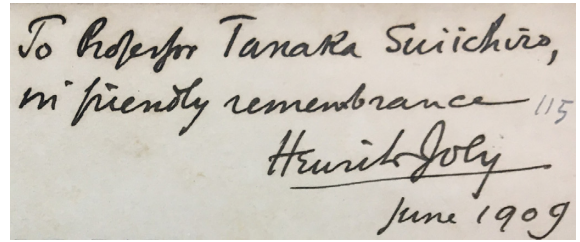 To Professor Tanaka Suiichiro,
in friendly remembrance 115
Henri L Joly
June 1909